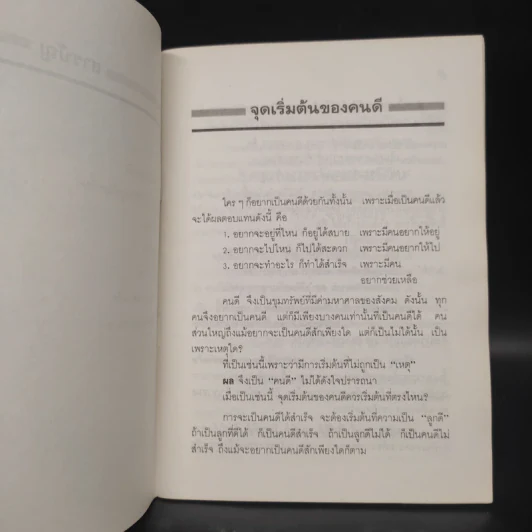 จุดเริ่มต้นของคนดี
ใคร ๆ ก็อยากเป็นคนดีด้วยกันทั้งนั้น เพราะเมื่อเป็นคนดีแล้ว
จะได้ผลตอบแทนดังนี้ คือ
1. อยากจะอยู่ที่ไหน ก็อยู่ได้สบาย เพราะมีคนอยากให้อยู่
2. อยากจะไปไหน ก็ไปได้สะดวก เพราะมีคนอยากให้ไป
3. อยากจะทำอะไร ก็ทำได้สำเร็จ เพราะมีคน
อยากช่วยเหลือ
คนดี จึงเป็นขุมทรัพย์ที่มีค่ามหาศาลของสังคม ดังนั้น ทุก
คนจึงอยากเป็นคนดี แต่ก็มีเพียงบางคนเท่านั้นที่เป็นคนดีได้ คน
ส่วนใหญ่ถึงแม้อยากจะเป็นคนดีสักเพียงใด แต่ก็เป็นไม่ได้นั้น เป็น
เพราะเหตุใด?
ที่เป็นเช่นนี้เพราะว่ามีการเริ่มต้นที่ไม่ถูกเป็น "เหตุ"
ผล จึงเป็น "คนดี" ไม่ได้ดังใจปรารถนา
เมื่อเป็นเช่นนี้ จุดเริ่มต้นของคนดีควรเริ่มต้นที่ตรงไหน?
การจะเป็นคนดีได้สำเร็จ จะต้องเริ่มต้นที่ความเป็น "ลูกดี"
ถ้าเป็นลูกที่ดีได้ ก็เป็นคนดีสำเร็จ ถ้าเป็นลูกดีไม่ได้ ก็เป็นคนดีไม่
สำเร็จ ถึงแม้จะอยากเป็นคนดีสักเพียงใดก็ตาม